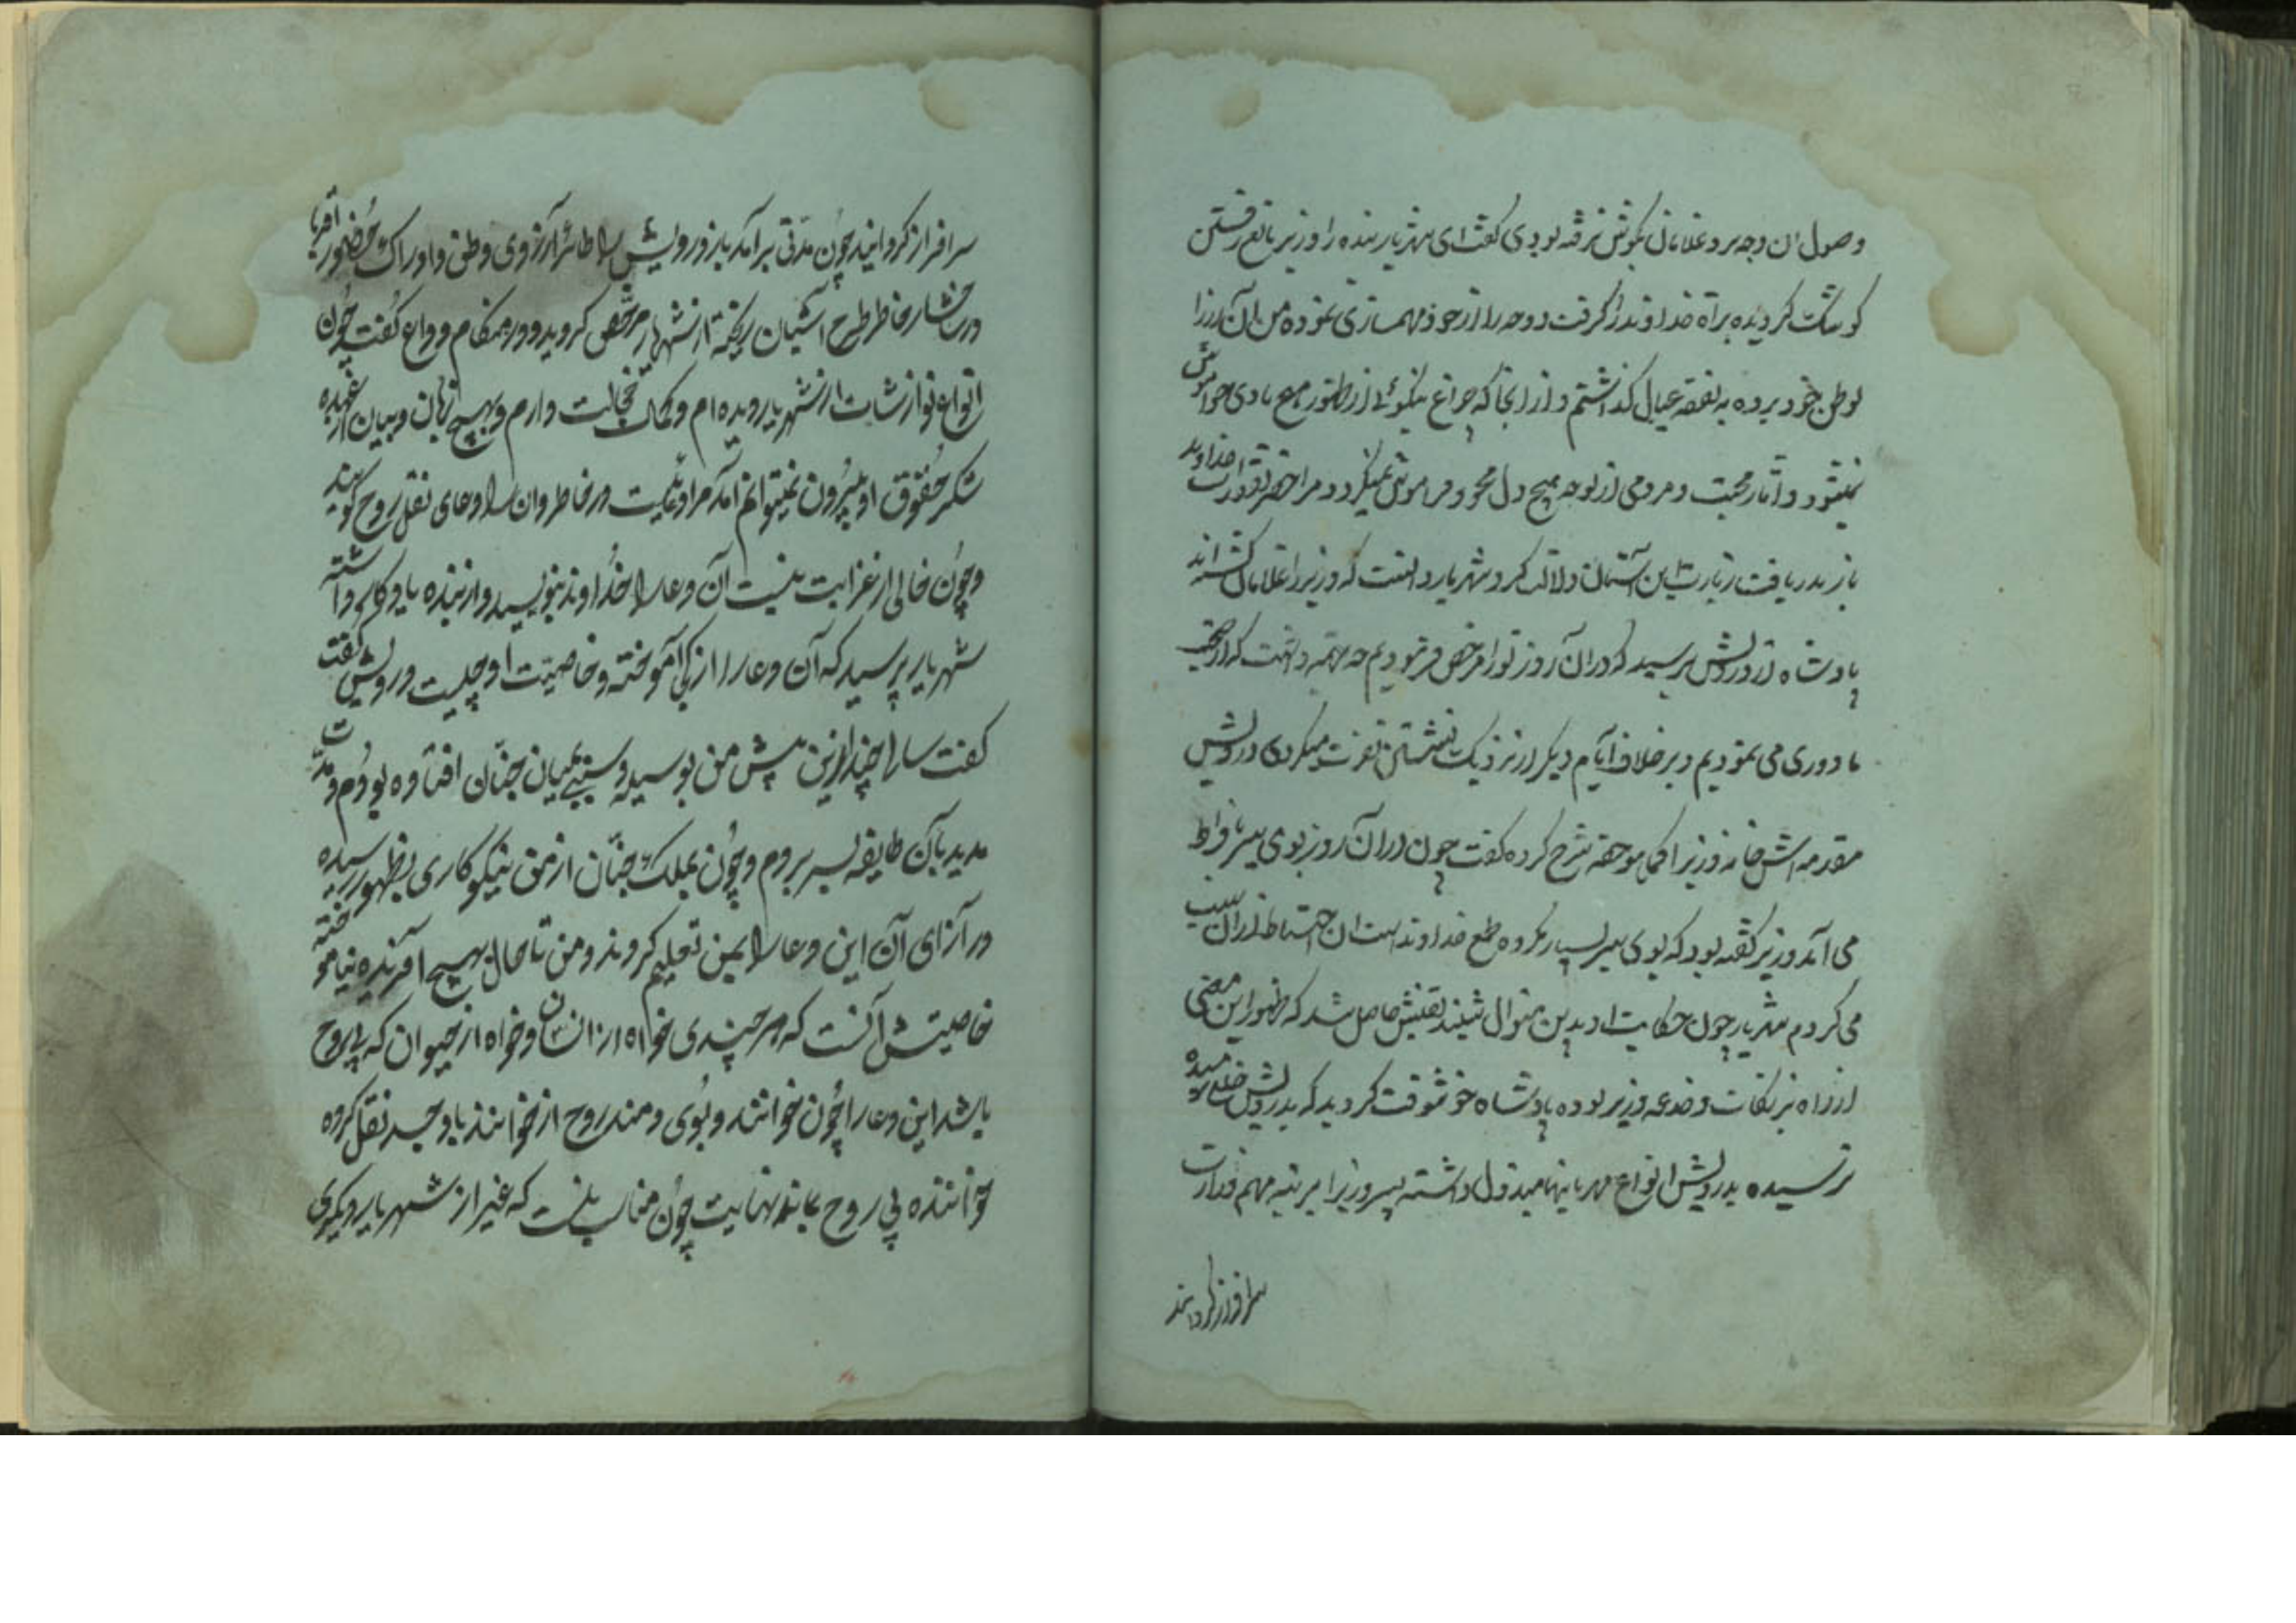 وصول ان وجه برد غلامان بکوش نرفته بودی گفت ای شهریار بنده را وزیر مانع رفتن
کوشک گردیده براه خداوند از گرفت و وجه را از خود مهمسازی نموده من ان زر را
بوطن خود برده به نفقه عیال گذاشتم و از انجا که چراغ نیکوئی از هیچ بادی خواموش
نمیشود و آثار محبت و مردمی از لوحه هیچ دل محو و فراموش نمیگردد مرا خداوند
باز بدریافت زیارت این آستان دلالت کرد شهریار دانست که وزیر را غلامان کشته اند
پادشاه از درویش پرسید که در ان روز تورا مرخص فرمودیم چه جهة داشت که از
ما دوری می نمودیم و بر خلاف ایام دیگر از نزدیک نشستن نفرت میکردی درویش
مقدمه اش خانه وزیر را کماهو حقه شرح کرده گفت چون در آن روز بوی سیر بافراط
می آمد وزیر گفته بود که بوی سیر بسیار مکروه طبع خداوند است ان احتیاط از ان سبب
می کردم شهریار چون حکایت را بدین منوال شنید یقینش حاصل شد که ظهور این معنی
از راه نیرنگات و خدعه وزیر بوده پادشاه خوشوقت گردید که بدرویش
نرسیده بدرویش انواع مهربانیها مبذول داشته پسر وزیر را بمرتبه مهم وزارت
سرافراز گردانید
سرافراز گردانید چون مدتی برآمد باز درویش را طائر آرزوی وطن و ادراک حضور اقربا
در شاخسار خاطر طرح آشیان ریخته از شهریار مرخص گردید و در هنگام وداع گفت چون
انواع نوازشات از شهریار دیده ام و کمال خجالت دارم و بهیچ زبان و بیان از عهده
شکر حقوق او بیرون نمیتوانم آمد مرا دعائیست در خاطر و ان را دعای نقل روح گویند
و چون خالی از غرابت نیست آن دعا را خداوند بنویسد و از بنده یادگار داشته
شهریار پرسید که آن دعا را از کی آموخته و خاصیت او چیست درویش گفت
گفت سال چند ازین پیش من بوسیله و سببی بمیان جنان افتاده بودم و مدت
مدید بآن طایفه بسر بردم و چون بملک جنان از من نیکوکاری بظهور رسیده
در آزای آن این دعا را بمن تعلیم کردند و من تا حال بهیچ آفریده نیاموخته
خاصیتش آنست که هر چیزی خواه از انسان و خواه از حیوان که بی روح
باشد این دعا را چون خوانند و بر وی دمند روح از خوانند باو جسد نقل کرده
خواننده بی روح بماند نهایت چون مناسب نیست که غیر از شهریار دیگری